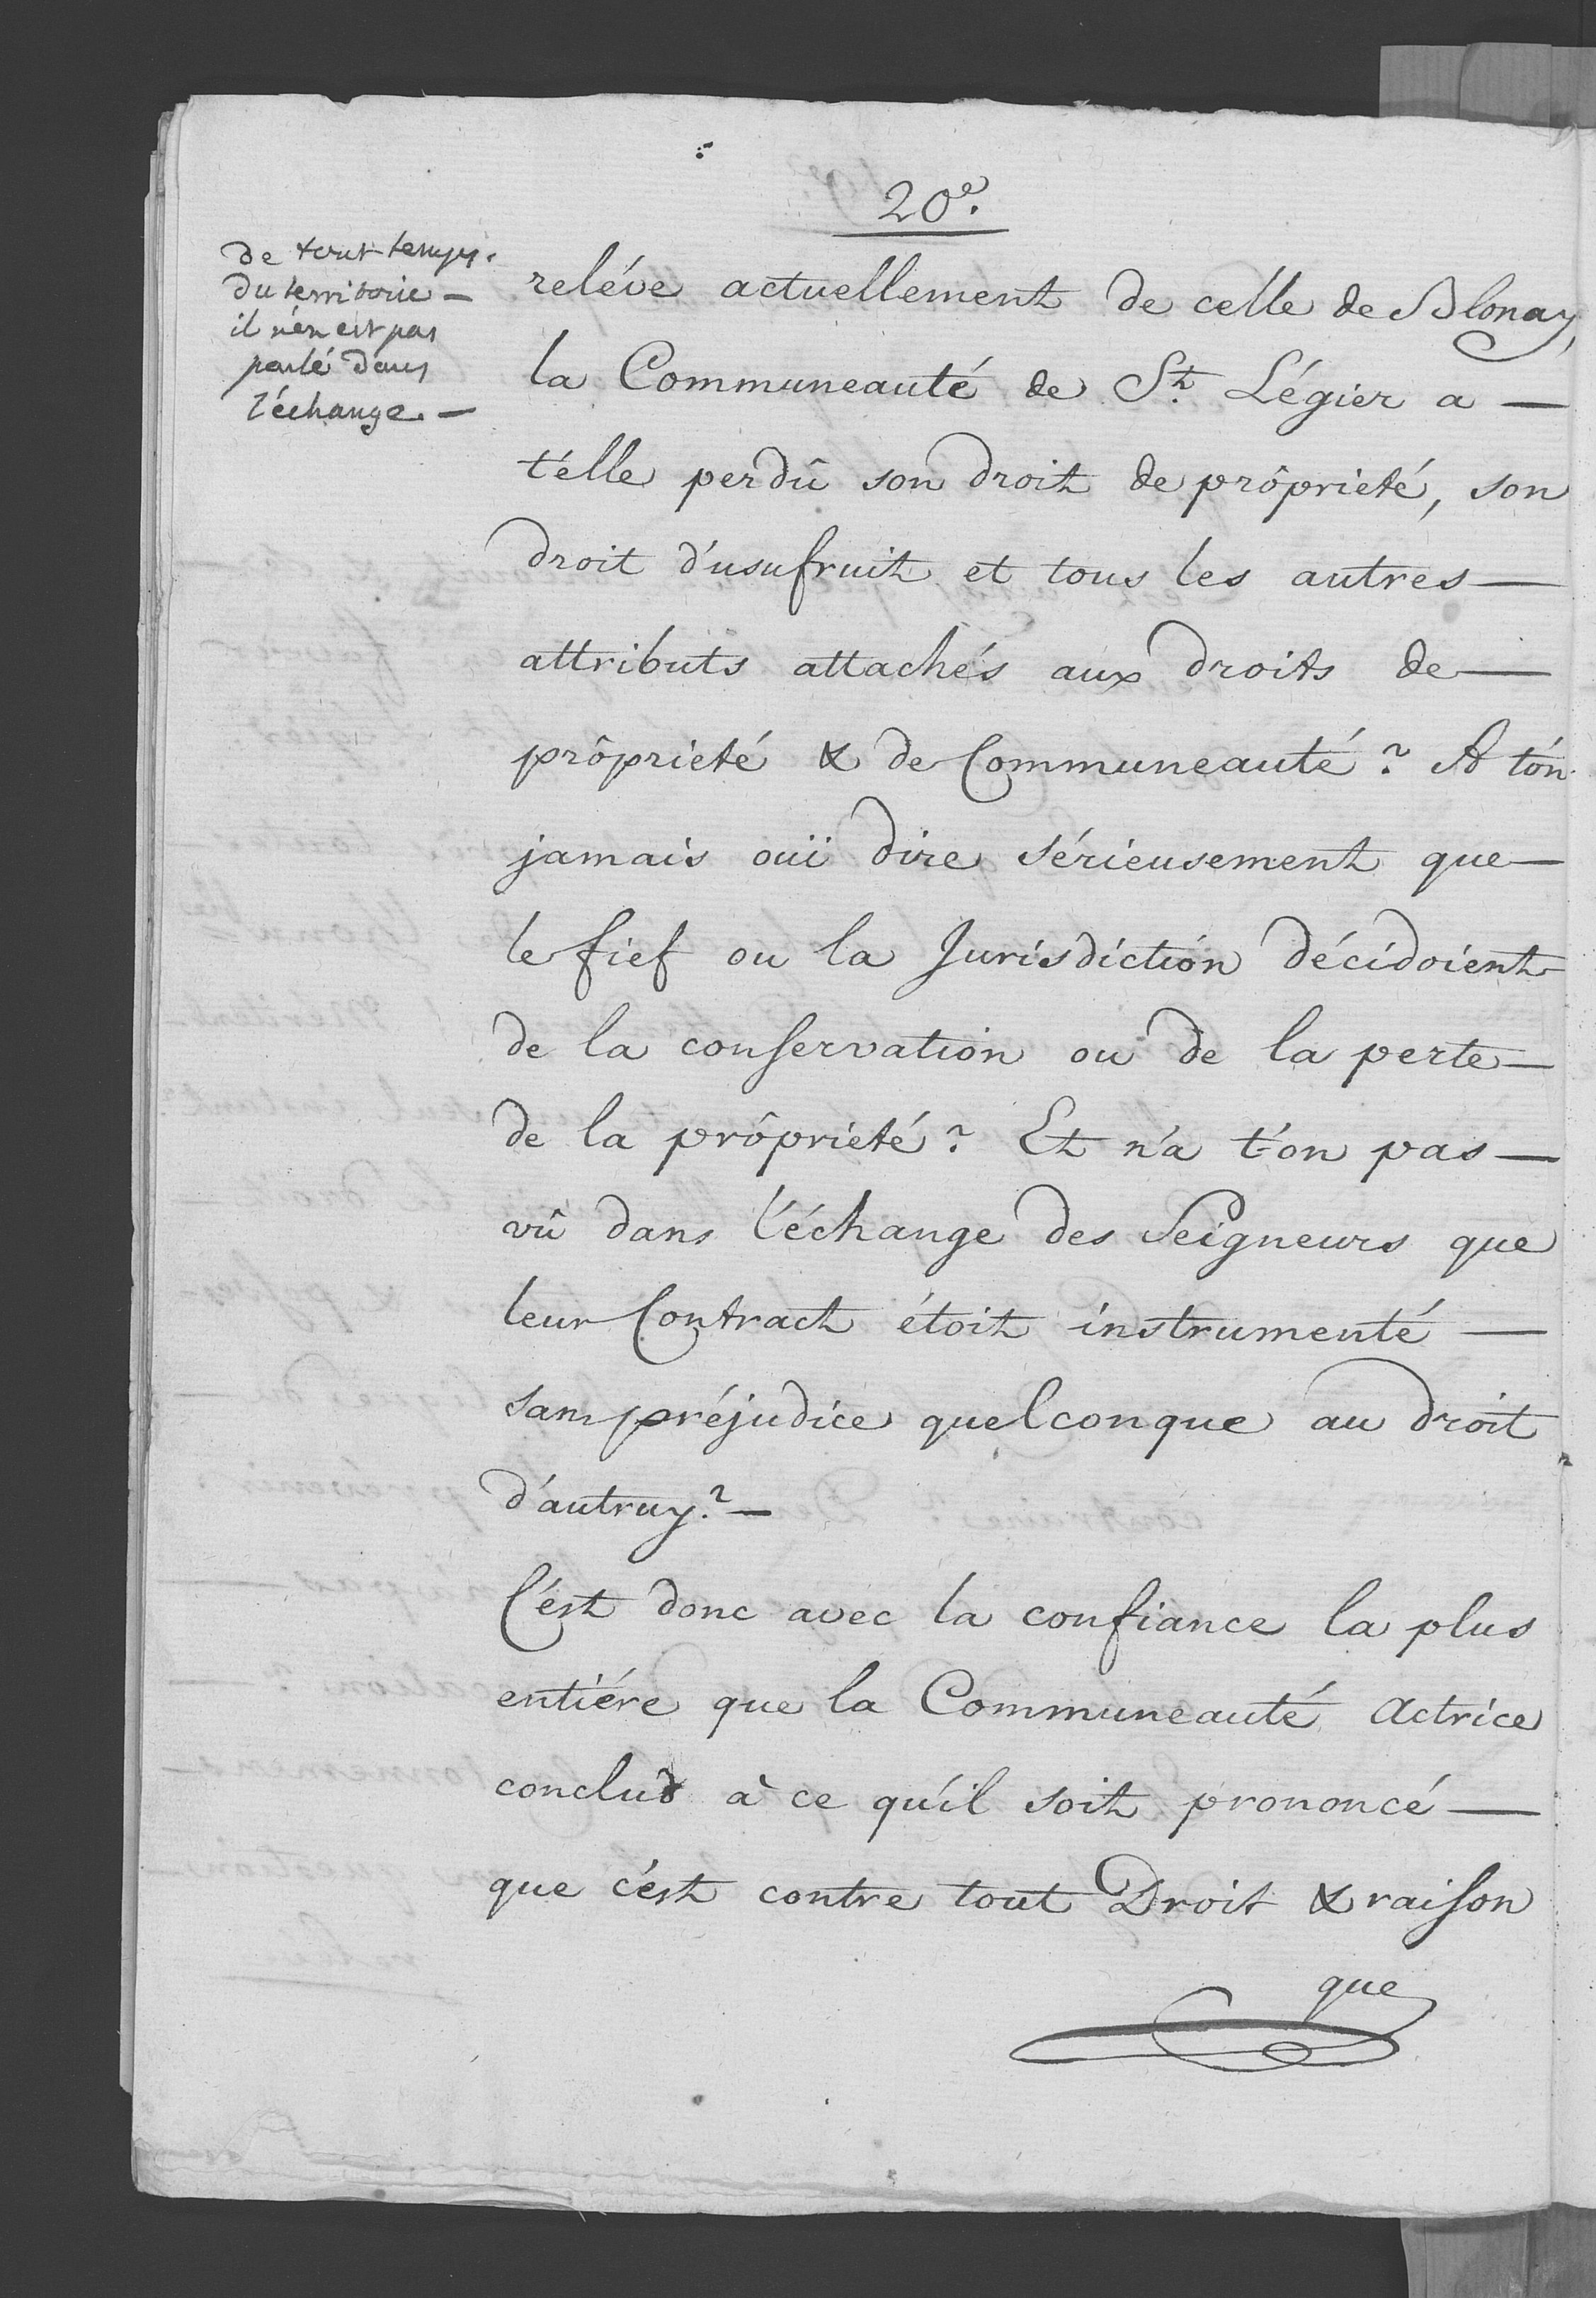 20e.
de tout temps.
du territoire —
il n'en est pas
parlé dans
l'échange. —
reléve actuellement de celle de Blonay,
la Communeauté de St. Légier a —
t'elle perdû son droit de prôprieté, son
droit d'usufruit et tous les autres —
attributs attachés aux droits de —
prôprieté & de Communeauté? A t'on
jamais ouï dire sérieusement que —
le fief ou la Jurisdiction décidoient
de la conservation ou de la perte —
de la prôprieté? Et n'a t'on pas —
vû dans l'échange des Seigneurs que
leur Contract étoit instrumenté —
sans préjudice quelconque au droit
d'autruy? —
C'est donc avec la confiance la plus
entiére que la Communeauté Actrice
conclud à ce qu'il soit prononcé —
que c'est contre tout Droit & raison
que